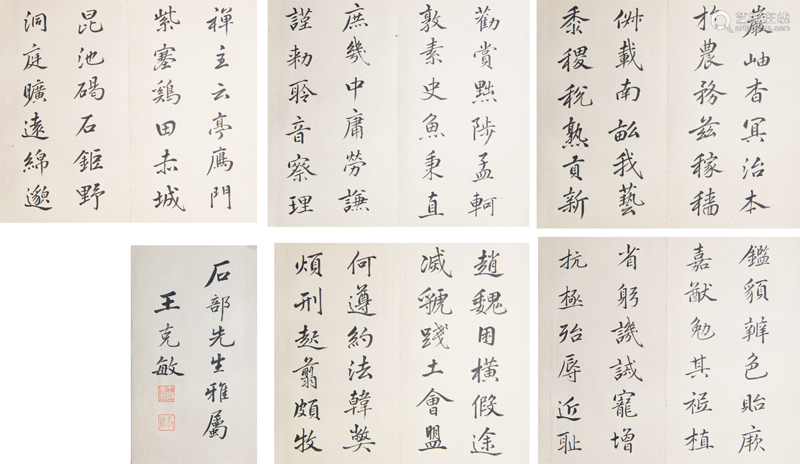 巖岫杳冥治本
扵農務茲稼穡
俶載南畝我藝
黍稷稅熟貢新
勸賞黜陟孟軻
敦素史魚秉直
庶幾中庸勞謙
謹勅聆音察理
禪主云亭鴈門
紫塞鷄田赤城
昆池碣石鉅野
洞庭曠遠綿邈
鑑貌辨色貽厥
嘉猷勉其祗植
省躬譏誡寵增
抗極殆辱近耻
趙魏困橫假途
滅虢踐土會盟
何遵約法韓弊
煩刑起翦頗牧
石部先生雅屬
王克敏
艺狐在线